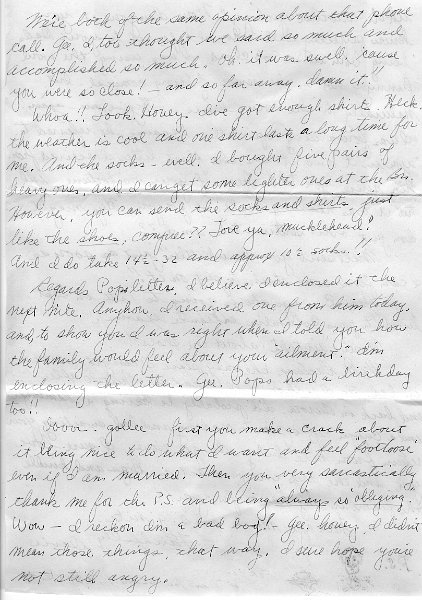 We're both of the same opinion about that phone
call. Gee, I, too thought we said so much and
accomplished so much. Oh, it was swell, 'cause
you were so close! - and so far away, damn it!!
Whoa!! Look, Honey. I've got enough shirts. Heck,
the weather is cool and one shirt lasts a long time for
me. And the socks - well, I bought five pairs of
heavy ones, and I can get some lighter ones at the
However, you can send the socks and shirts just
like the shoes, compree?? Love ya, mucklehead!
And I do take 14½-32 and approx 10½ socks!!
Regards Pop's letter, I believe I enclosed it the
next nite. Anyhow, I received one from him today,
and to show you I was right when I told you how
the family would feel about your "ailment." I'm
enclosing the letter. Gee, Pops had a birthday
too!!
Sooo.. gollee first you make a crack about
it being nice to do what I want and feel "footloose"
even if I am married. Then you very sarcastically
thank me for the P.S. and being "always so obliging."
Wow - I reckon I'm a bad boy! - Gee, honey, I didn't
mean those things, that way. I sure hope you're
not still angry.